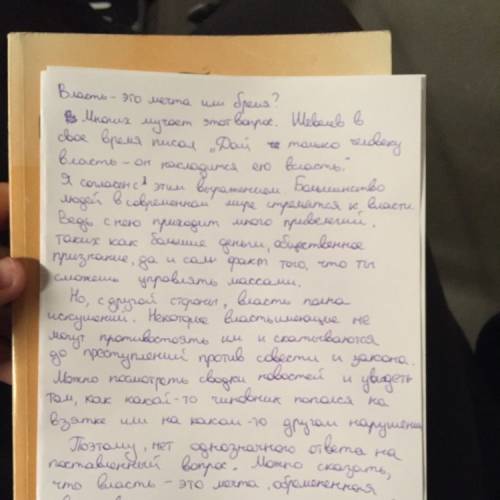 Власть - это мечта или бремя?
Многих мучает этот вопрос. Шевелев в
свое время писал „Дай только человеку
власть - он насладится ею всласть."
Я согласен с этим выражением. Большинство
людей в современном мире стремятся к власти.
Ведь с нею приходит много привелегий,
таких как большие деньги, общественное
признание, да и сам факт того, что ты
сможешь управлять массами.
Но, с другой стороны, власть полна
искушений. Некоторые властьимеющие не
могут противостоять им и скатываются
до преступлений против совести и закона.
Можно посмотреть сводки новостей и увидеть
там, как какой-то чиновник попался на
взятке или на каком-то другом нарушении
Поэтому, нет однозначного ответа на
поставленный вопрос. Можно сказать,
что власть - это мечта, обремененная